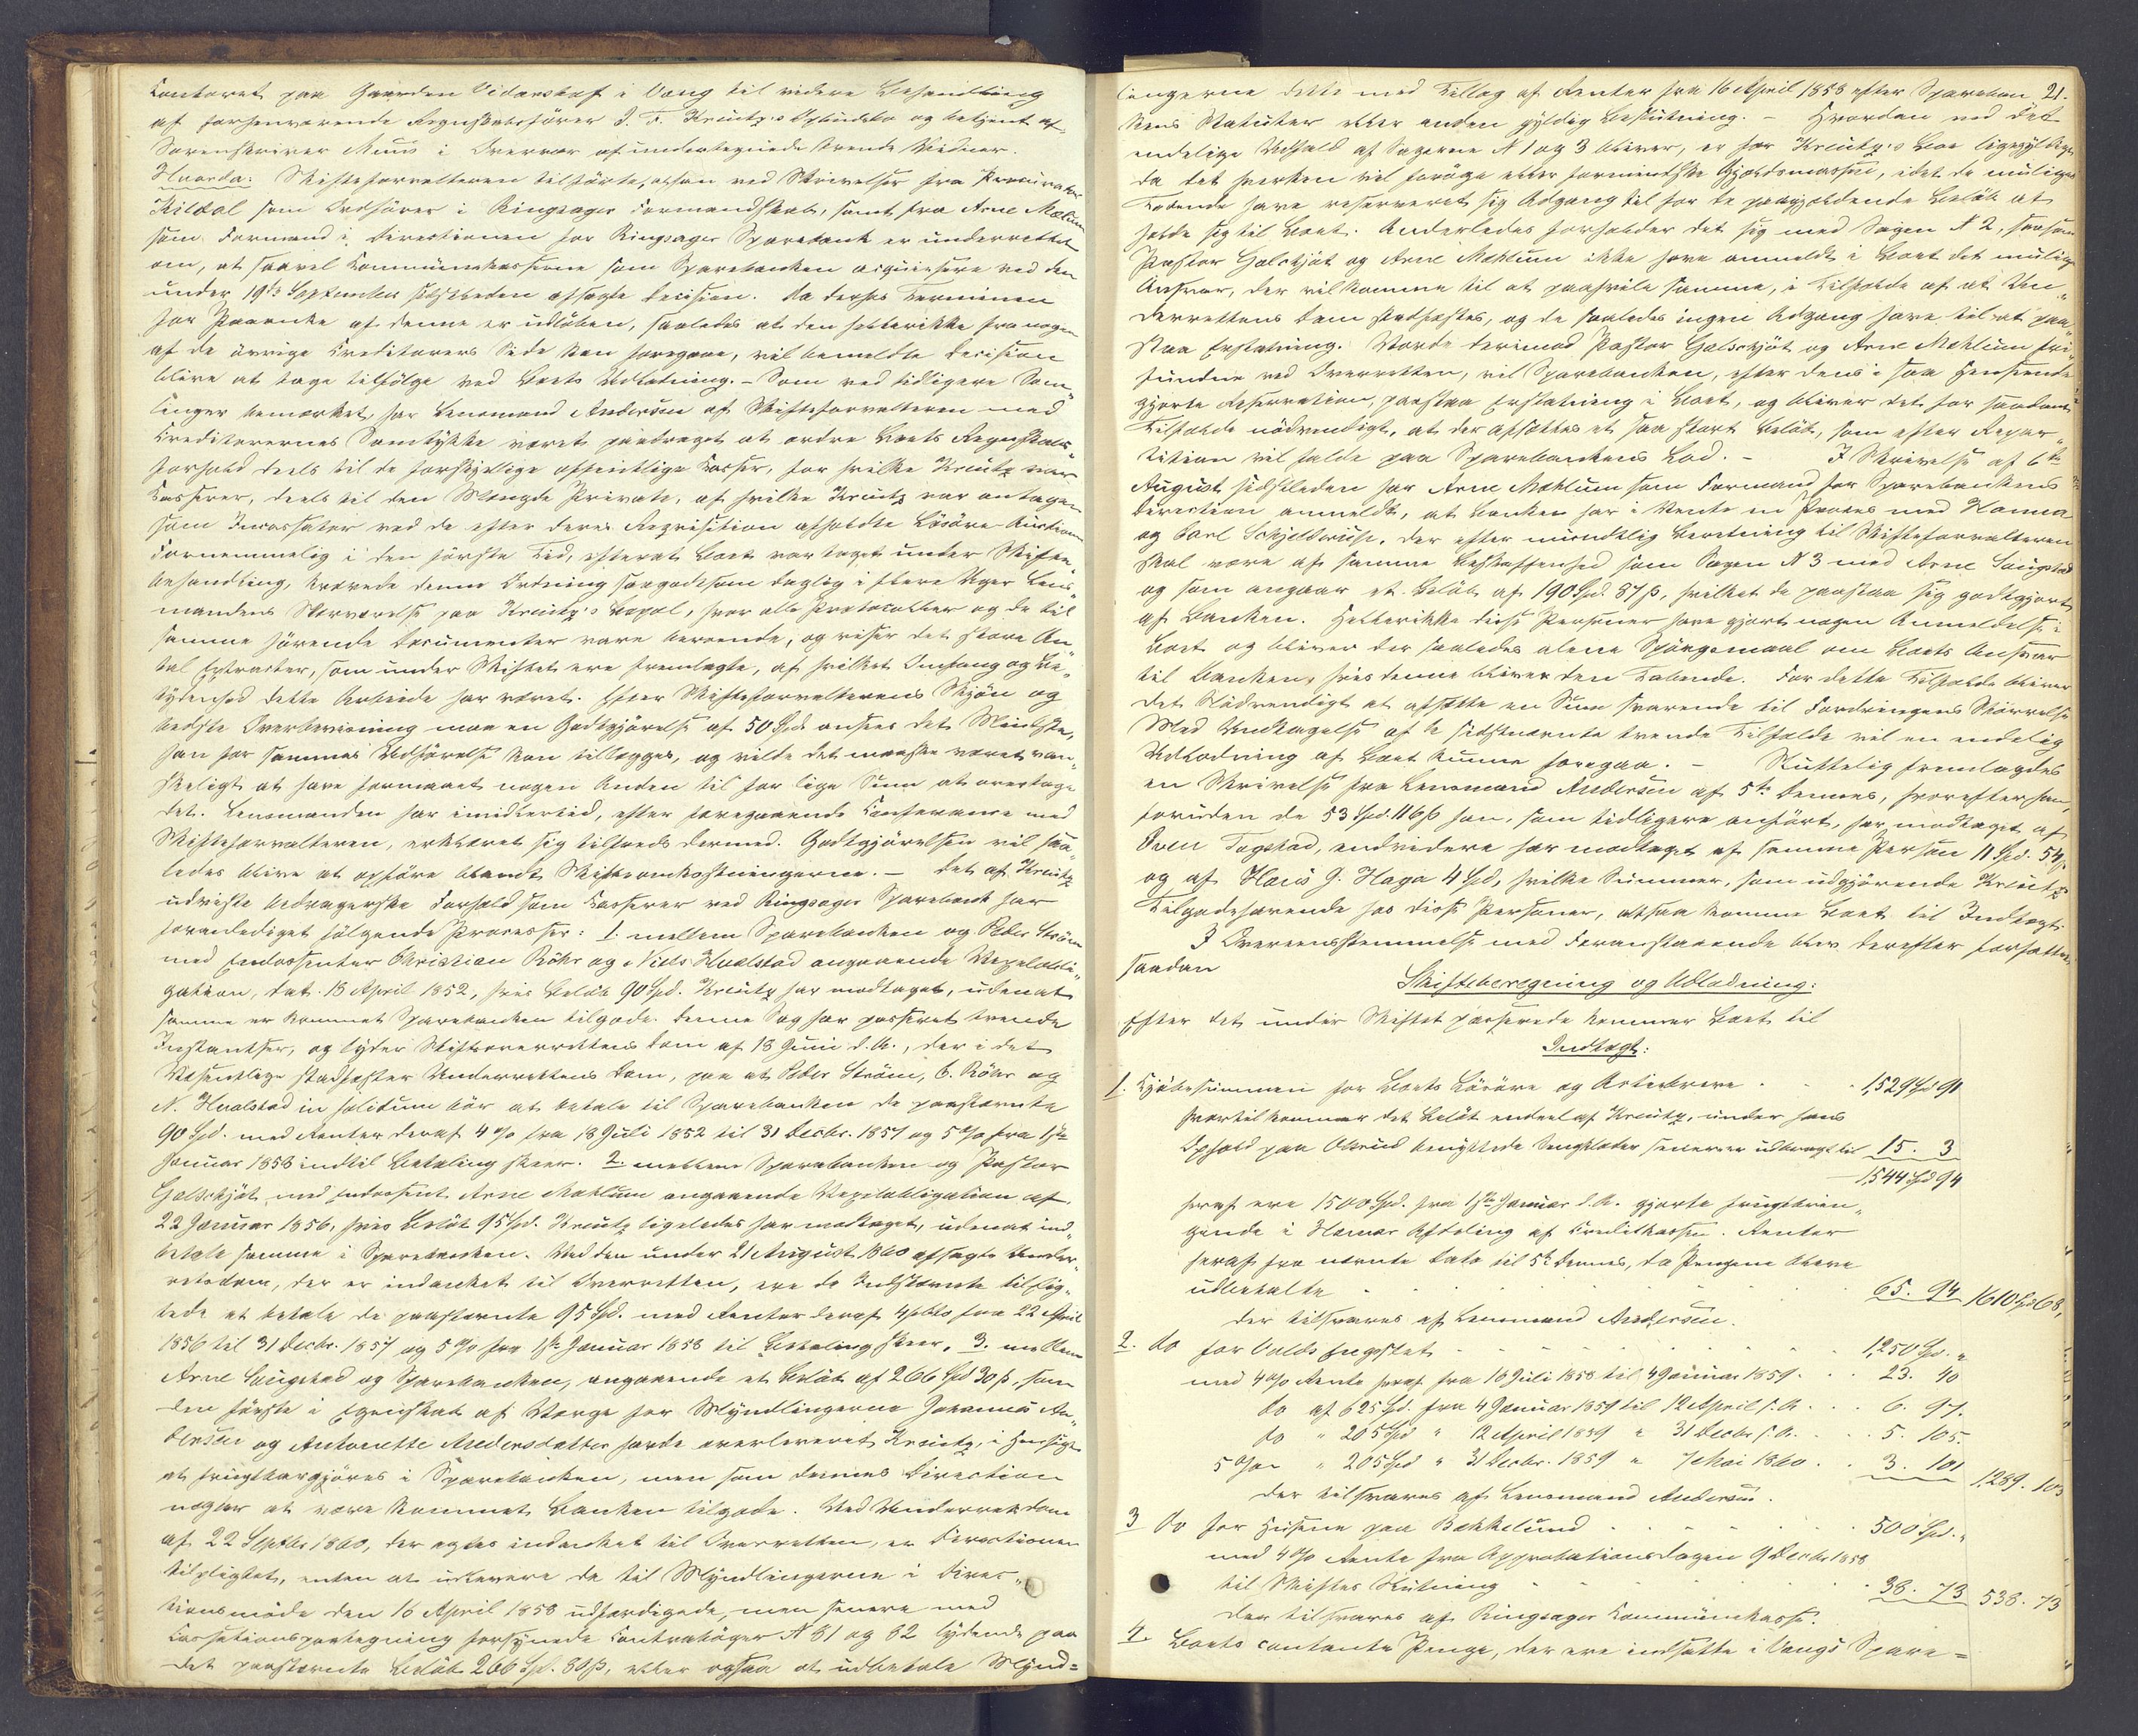 Contoret paa Gaarden Vidarshof i Vang til videre Behandling
af forhenværende Regnskabsfører J. F. Kreutz's Opbudsbo og betjent af
Sorenskriver Muus i Overvær af undertegnede tvende Vidner.
Hvorda: Skifteforvalteren tilførte, at han ved Skrivelser fra Procurator
Kildal som Ordfører i Ringsager Formandskab, samt fra Arne Mælum
som Formand i Directionen for Ringsager Sparebank er underrettet
om, at saavel Communekasserne som Sparebanken acquiescere ved den
under 19de September sidstleden afsagte Decision. Da derhos Terminen
for Paaanke af denne er udløben, saaledes at den hellerikke fra nogen
af de øvrige Creditorers Side kan foregaae, vil bemeldte Decision
blive at tage tilfølge ved Boets Udlodning. - Som ved tidligere Sam„
linger bemærket, har Lensmand Andersen af Skifteforvalteren med
Creditorernes Samtykke været paadraget at ordne Boets Regnskabs„
forhold deels til de forskjellige offentlige Casser, for hvilke Kreutz var
Casserer, deels til den Mængde Private, af hvilke Kreutz var antagen
som Incassator ved de efter deres Requisition afholdte Løsøre-Auctioner
Fornemmelig i den første Tid, efterat Boet var taget under Skifte„
behandling, krævede denne Ordning saagodtsom daglig i flere Uger Lens„
mandens Nærværelse paa Kreutz's Bopæl, hvor alle Protocoller og de til
samme hørende Documenter vare beroende, og viser det store An„
tal Extracter, som under Skiftet ere fremlagte, af hvilket Omfang og Be„
tydenhed dette Arbeide har været. Efter Skifteforvalterens Skjøn og
bedste Overbeviisning maa en Godtgjørelse af 50 Spd. ansees det Mindste,
han for sammes Udførelse kan tillægges, og vilde det maaske været van„
skeligt at have formaaet nogen Anden til for lige Sum at overtage
det. Lensmanden har imidlertid, efter foregaaende Conferance med
Skifteforvalteren, erklæret sig tilfreds dermed. Godtgjørelsen vil saa„
ledes blive at opføre blandt Skifteomkostningerne. - Det af Kreutz
udviste bedragerske Forhold som Casserer ved Ringsager Sparebank har
foranlediget følgende Processer: 1. mellem Sparebanken og Peder Strøm
med Endossenter Christian Röhr og Niels Hualstad angaaende Vexelobli„
gation, dat. 18 April 1852, hvis Beløb 90 Spd. Kreutz har modtaget, udenat
samme er kommet Sparebanken tilgode. Denne Sag har passeret tvende
Instantser, og lyder Stiftsoverrettens Dom af 18 Juni d. A., der i det
Væsentlige stadfæster Underrettens Dom, paa at Peder Strøm, C. Röhr og
N. Hualstad in solidum bør at betale til Sparebanken de paastævnte
90 Spd. med Renter deraf 4 % fra 18 Juli 1852 til 31 Decbr. 1857 og 5 % fra 1ste
Januar 1858 indtil Betaling skeer. 2. mellem Sparebanken og Pastor
Galschjøt med Endossent Arne Mæhlum angaaende Vexelobligation af
22 Januar 1856, hvis Beløb 95 Spd. Kreutz ligeledes har modtaget, udenat ind„
betale samme i Sparebanken. Ved den under 21 August 1860 afsagte Under„
retsdom, der er indanket til Overretten, ere de Indstævnte tilplig„
tede at betale de paastævnte 95 Spd. med Renter deraf 4 pCto fra 22 April
1856 til 31 Decbr. 1857 og 5 % fra 1ste Januar 1858 til Betaling skeer, 3. mellem
Arne Saugstad og Sparebanken, angaaende et Beløb af 266 Spd 80 ß, som
den første i Egenskab af Værge for Myndlingerne Johannes An„
dersen og Antonette Andersdatter havde overleveret Kreutz i Hensigt
at frugtbargjøres i Sparebanken, men som dennes Direction
negter at være kommet Banken tilgode. Ved Underretsdom
af 22 Septbr 1860, der agtes indanket til Overretten, er Directionen
tilpligtet, enten at udlevere de til Myndlingerne i Direc„
tionsmøde den 16 April 1858 udfærdigede, men senere med
Cassationspaategning forsynede Contrabøger N 81 og 82 lydende paa
det paastævnte Beløb 266 Spd. 80 ß, eller ogsaa at udbetale Mynd=
21.
lingerne dette med Tillæg af Renter fra 16 April 1858 efter Spareban
kens Statuter eller anden gyldig Beslutning. - Hvordan nu det
endelige Udfald af Sagerne N 1 og 3 bliver, er for Kreutz's Boe ligegyldigt
da det hverken vil forøge eller formindske Gjældsmassen, idet de muligens
Tabende have reserveret sig Adgang til for de paagjældende Beløb at
holde sig til Boet. Anderledes forholder det sig med Sagen N 2, forsaavidt
Pastor Galschjøt og Arne Mæhlum ikke have anmeldt i Boet det mulige
Ansvar, der vil komme til at paahvile samme, i Tilfælde af at Un„
derrettens Dom stadfæstes, og de saaledes ingen Adgang have til at paa„
staa Erstatning. Vorde derimod Pastor Galschjøt og Arne Mæhlum fri„
fundne ved Overretten, vil Sparebanken, efter dens i saa Henseende
gjorte Reservation, paastaa Erstatning i Boet, og bliver det for saadant
Tilfælde nødvendigt, at der afsættes et saa stort Beløb, som efter Repar„
tition vil falde paa Sparebankens Lod. - I Skrivelse af 6te
August sidstleden har Arne Mæhlum som Formand for Sparebankens
Direction anmeldt, at Banken har i Vente en Proces med Hanna
og Carl Schjelderup, der efter mundtlig Beretning til Skifteforvalteren
skal være af samme Beskaffenhed som Sagen N 3 med Arne Saugstad
og som angaar et Beløb af 190 Spd. 87 ß, hvilket de paastaa sig godtgjort
af Banken. Hellerikke disse Personer have gjort nogen Anmeldelse i
Boet og bliver der saaledes alene Spørgsmaal om Boets Ansvar
til Banken, hvis denne bliver den Tabende. For dette Tilfælde bliver
det Nødvendigt at afsætte en Sum svarende til Fordringens Størrelse
Med Undtagelse af de sidstnævnte tvende Tilfælde vil en endelig
Udlodning af Boet kunne foregaa. - Sluttelig fremlagdes
en Skrivelse fra Lensmand Andersen af 5te dennes, hvorefter han,
foruden de 53 Spd. 116 ß han, som tidligere anført, har modtaget af
Sven Togstad, endvidere har modtaget af samme Person 11 Spd. 54 ß
og af Hans G. Haga 4 Spd, hvilke Summer, som udgjørende Kreutz's
Tilgodehavende hos disse Personer, altsaa komme Boet til Indtægt.
I Overeensstemmelse med Foranstaaende blev derefter forfattet
saadan
Skifteberegning og Udlodning:
Efter det under Skiftet passerede kommer Boet til
Indtægt:
1. Kjøbesummen for Boets Løsøre og Activkrave . . . 1,529 Spd 91
hvortil kommer det Beløb endeel af Kreutz, under hans
Ophold paa Obsrud benyttede Sengklæder senere er udbragt til 15. 3
1544 Spd 94
heraf ere 1500 Spd. fra 1ste Januar d. A. gjorte frugtbrin„
gende i Hamar Afdeling af Creditkassen. Renter
heraf fra nævnte Dato til 5te dennes, da Pengene bleve
udbetalte . . . 65. 94 1610 Spd 68,
der tilsvares af Lensmand Andersen.
2. do for Volds Engslet . . . 1,250 Spd. „
med 4 % Rente heraf fra 16 Juli 1858 til 4 Januar 1859 . . 23. 40
do af 625 Spd. fra 4 Januar 1859 til 12 April s. A. . . . 6. 97.
do „ 205 Spd „ 12 April 1859 „ 31 Decbr s. A. . . . 5. 105.
5 % „ 205 Spd „ 31 Decbr. 1859 „ 7 Mai 1860 . . 3. 101 1,289. 103
der tilsvares af Lensmand Andersen.
3 do for Husene paa Bækkelund . . . 500 Spd. „
med 4 % Rente fra Approbationsdagen 9 Decbr 1858
til Skiftes Slutning . . . 38. 73 538. 73
der tilsvares af Ringsager Communekasse.
4. Boets contante Penge, der ere indsatte i Vangs Spare=